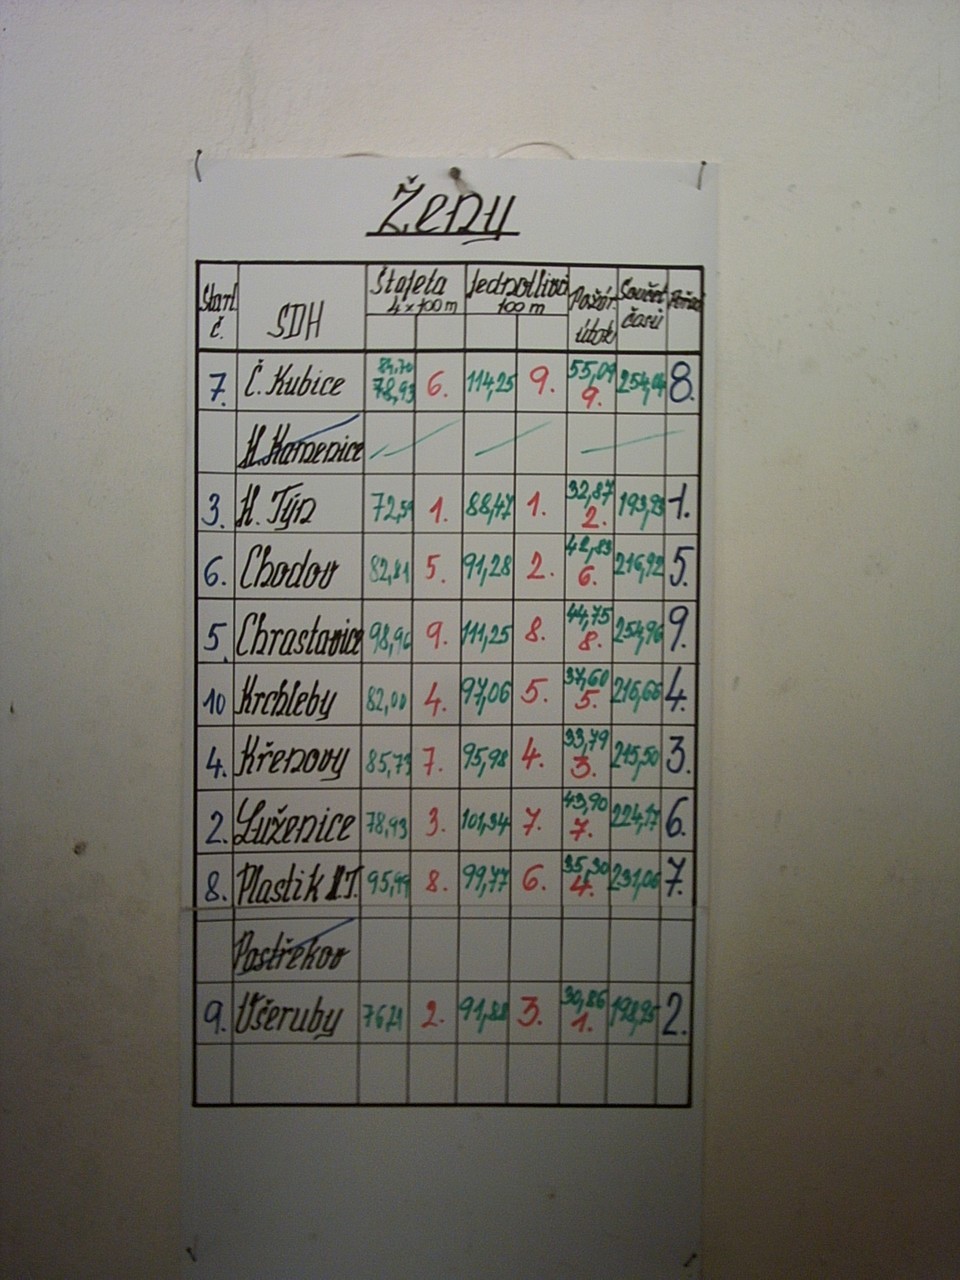 Ženy
Start. č. SDH Štafeta 4 x 100 m Jednotlivci 100 m Požár. útok Součet časů Pořadí
7. Č. Kubice 84,70 78,93 6. 114,25 9. 55,09 9. 254,04 8.
H. Kamenice
3. H. Týn 72,59 1. 88,47 1. 32,87 2. 193,93 1.
6. Chodov 82,81 5. 91,28 2. 42,83 6. 216,92 5.
5. Chrastavice 98,96 9. 111,25 8. 44,75 8. 254,96 9.
10 Krchleby 82,00 4. 97,06 5. 37,60 5. 216,66 4.
4. Křenovy 85,73 7. 95,98 4. 33,79 3. 215,50 3.
2. Luženice 78,93 3. 101,34 7. 43,90 7. 224,17 6.
8. Plastik H.T. 95,99 8. 99,77 6. 35,30 4. 231,06 7.
Postřekov
9. Všeruby 76,21 2. 91,88 3. 30,86 1. 198,95 2.